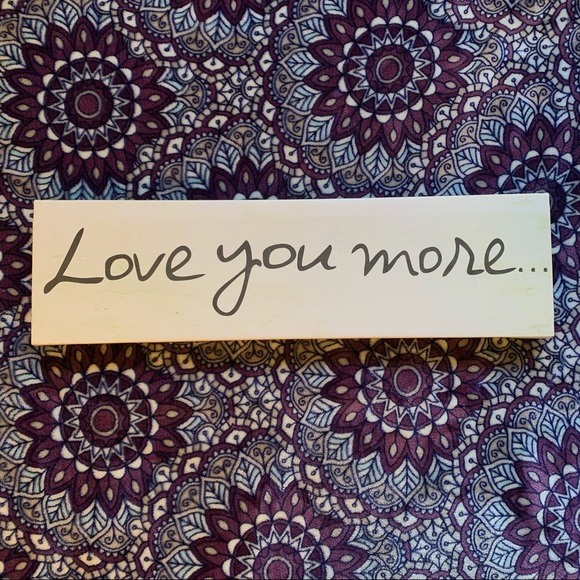 Love you more...